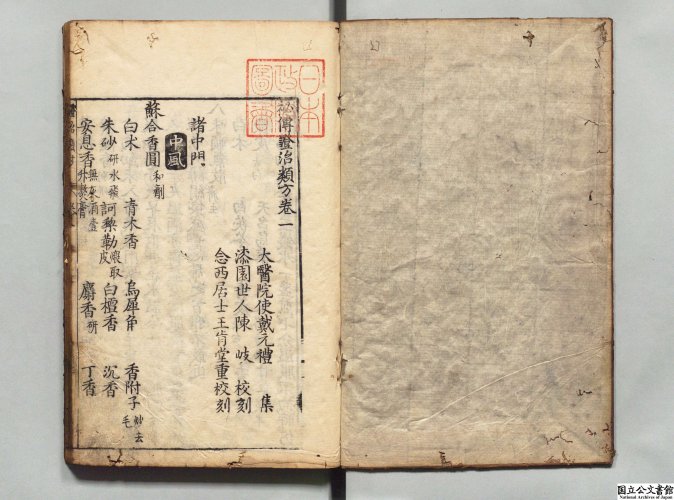 日本
政府
圖書
秘傳證治類方卷一
太醫院使戴元禮 集
漆園世人陳 岐 校刻
念西居士王肯堂重校刻
諸中門
中風
蘇合香圓 和劑
白朮 青木香 烏犀角 香附子 炒去毛
朱砂 研水飛 訶梨勒 煨取皮 白檀香 沉香
安息香 香 麝香 研 丁香
国立公文書館
National Archives of Japan